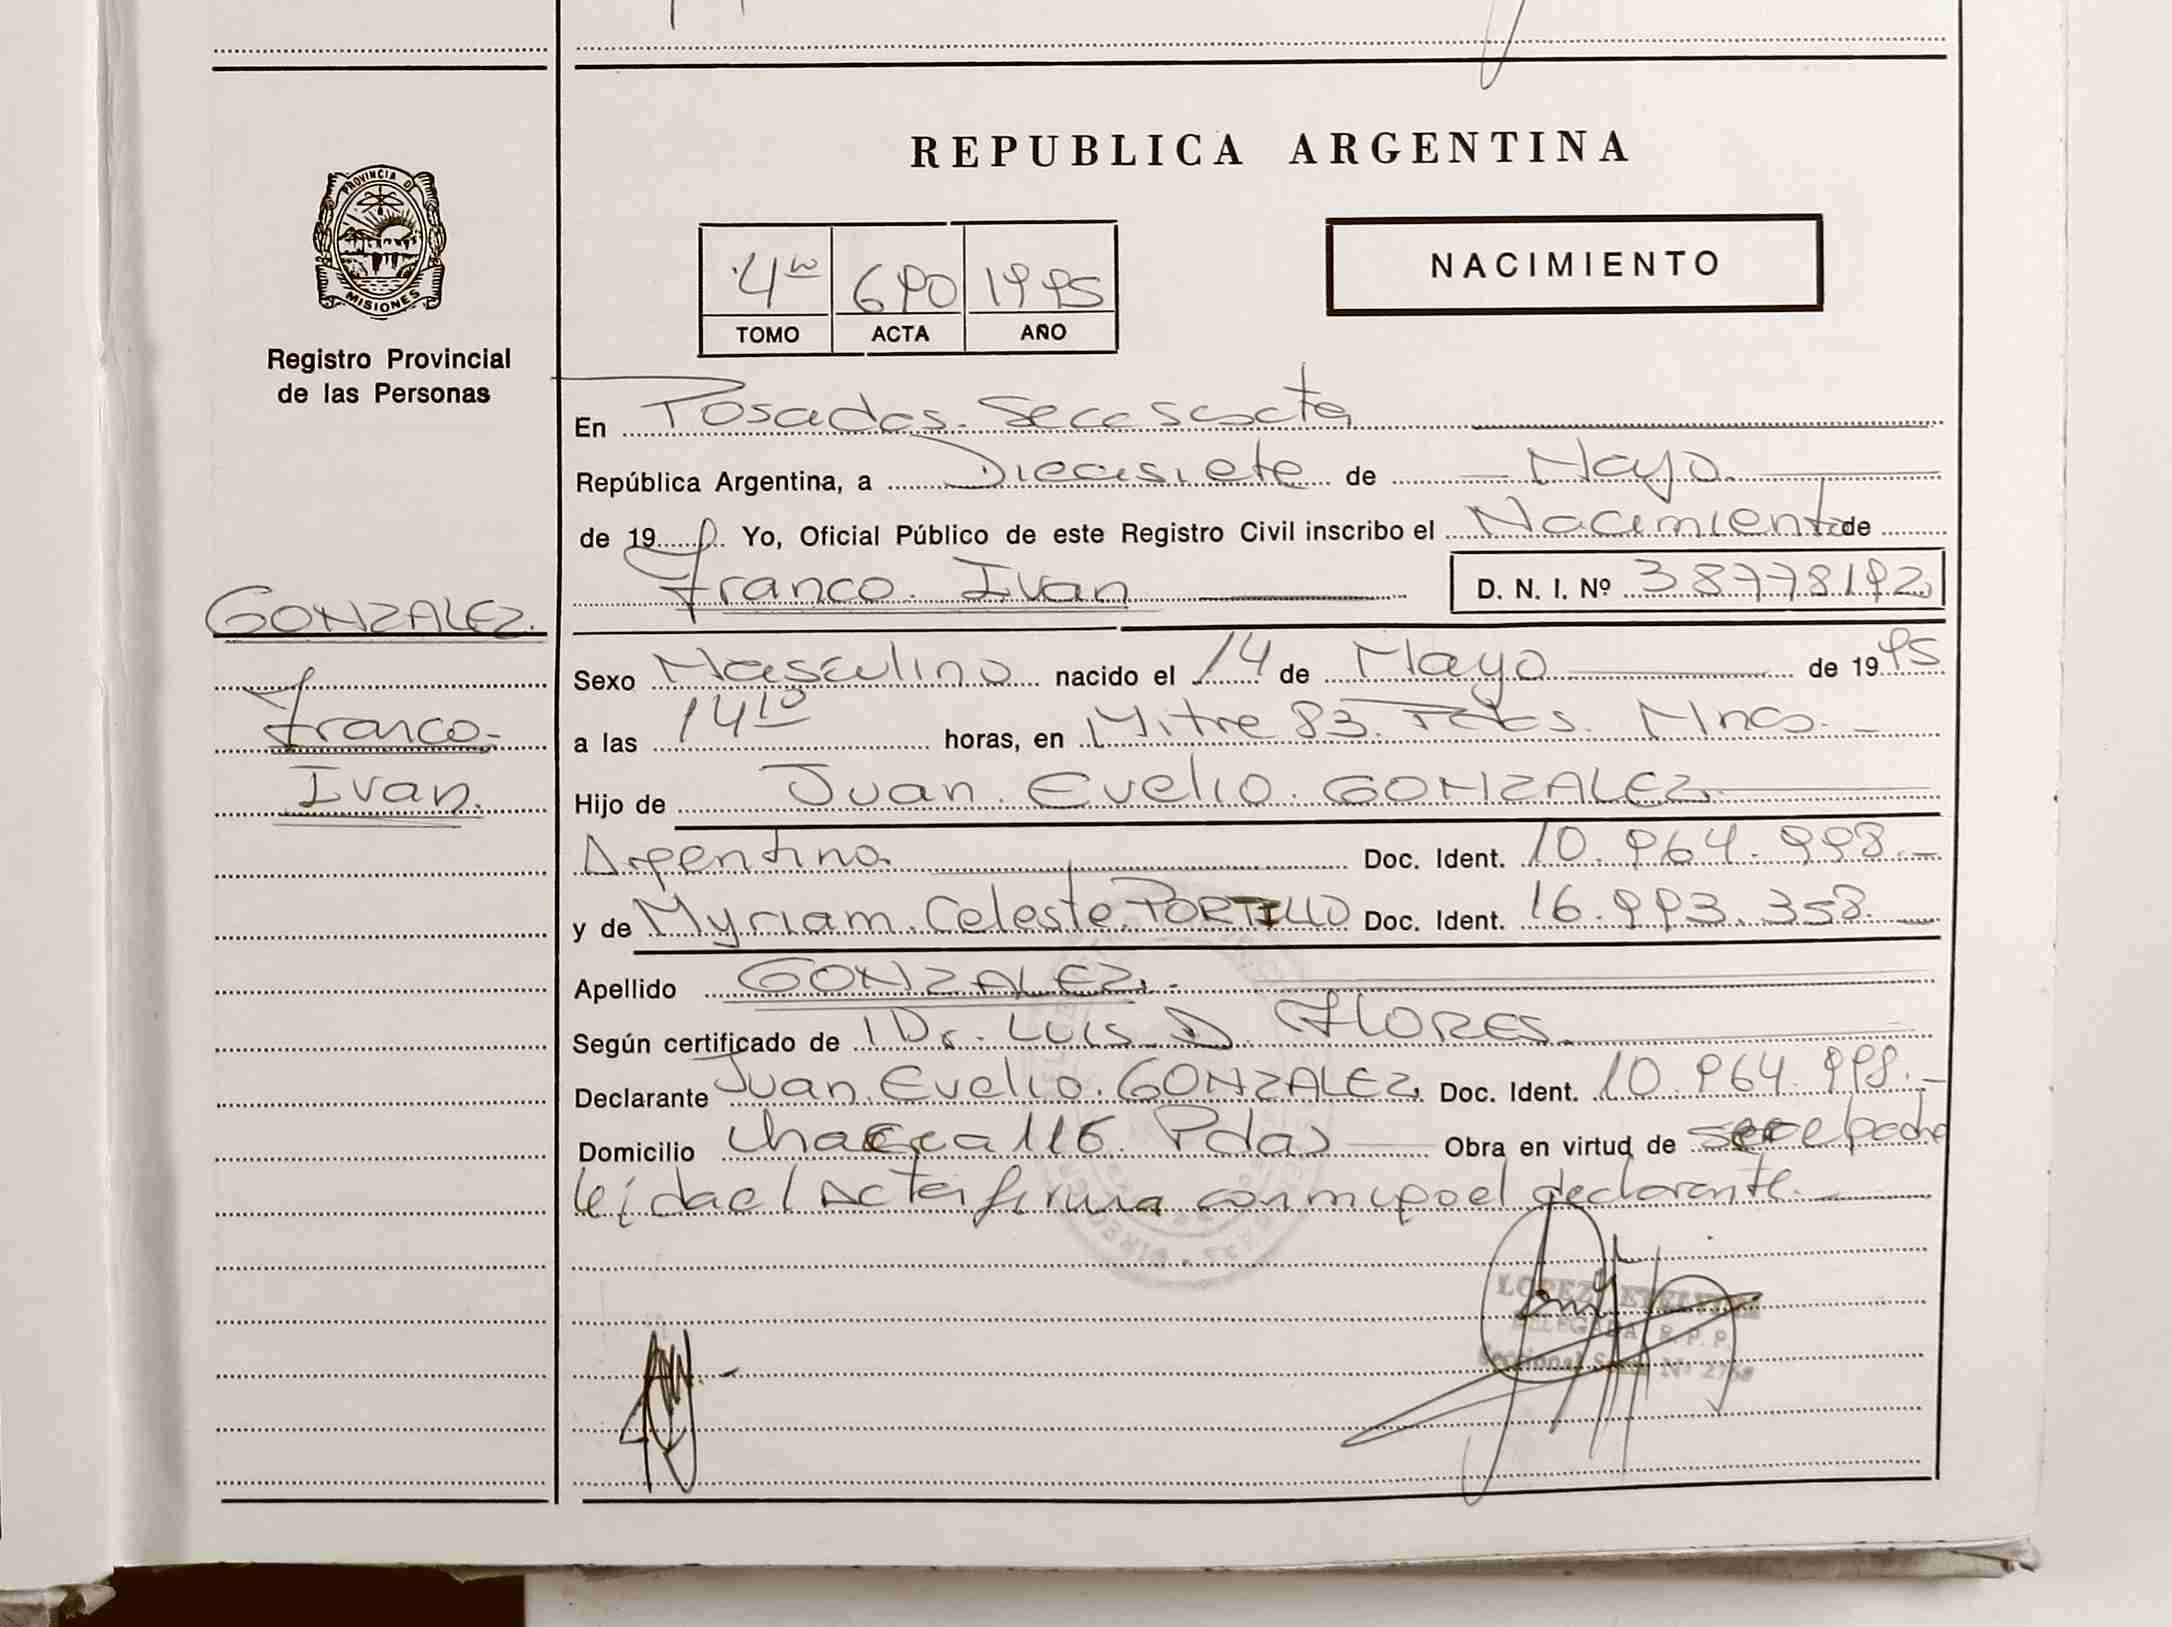 REPUBLICA ARGENTINA
PROVINCIA DE
MISIONES
Registro Provincial
de las Personas
NACIMIENTO
4to 690 1995
TOMO ACTA AÑO
En Posadas. Secc sexta
República Argentina, a Diecisiete de Mayo
de 19 Yo, Oficial Público de este Registro Civil inscribo el Nacimiento de
Franco. Ivan D. N. I. Nº 38778192
GONZALEZ.
Franco.
Ivan.
Sexo Masculino nacido el 14 de Mayo de 1995
a las 14 10 horas, en Mitre 83. Pdas. Mnes.
Hijo de Juan. Evelio. GONZALEZ.
Argentino. Doc. Ident. 10.964.998.-
y de Myriam. Celeste. PORTILLO Doc. Ident. 16.993.358.
Apellido GONZALEZ.
Según certificado de Dr. LUIS D. FLORES.
Declarante Juan. Evelio. GONZALEZ. Doc. Ident. 10.964.998.-
Domicilio chacra 116. Pdas Obra en virtud de
leída el Acta firma conmigo el declarante.
LOPEZ
DELEGADA R. P. P.
Seccional